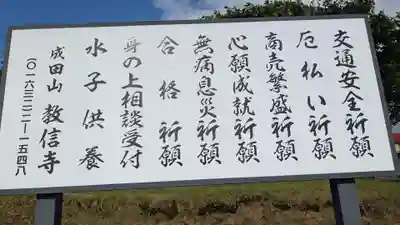 交通安全祈願
厄払い祈願
商売繁盛祈願
心願成就祈願
無病息災祈願
合格祈願
身の上相談受付
水子供養
成田山 教信寺
〇一六三二―二―一五四八